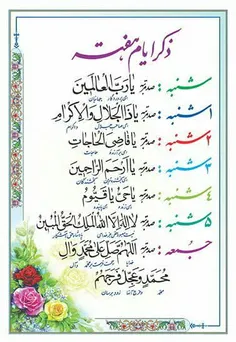 ذکر ایام هفته
شنبه : صد مرتبه یا رب العالمین
۱شنبه : صد مرتبه یا ذالجلال والاکرام
۲شنبه : صد مرتبه یا قاضی الحاجات
۳شنبه : صد مرتبه یا ارحم الراحمین
۴شنبه : صد مرتبه یا حی یا قیوم
۵شنبه : صد مرتبه لا اله الا الله الملک الحق المبین
جمعه : صد مرتبه اللهم صل علی محمد وآل
محمد وعجل فرجهم